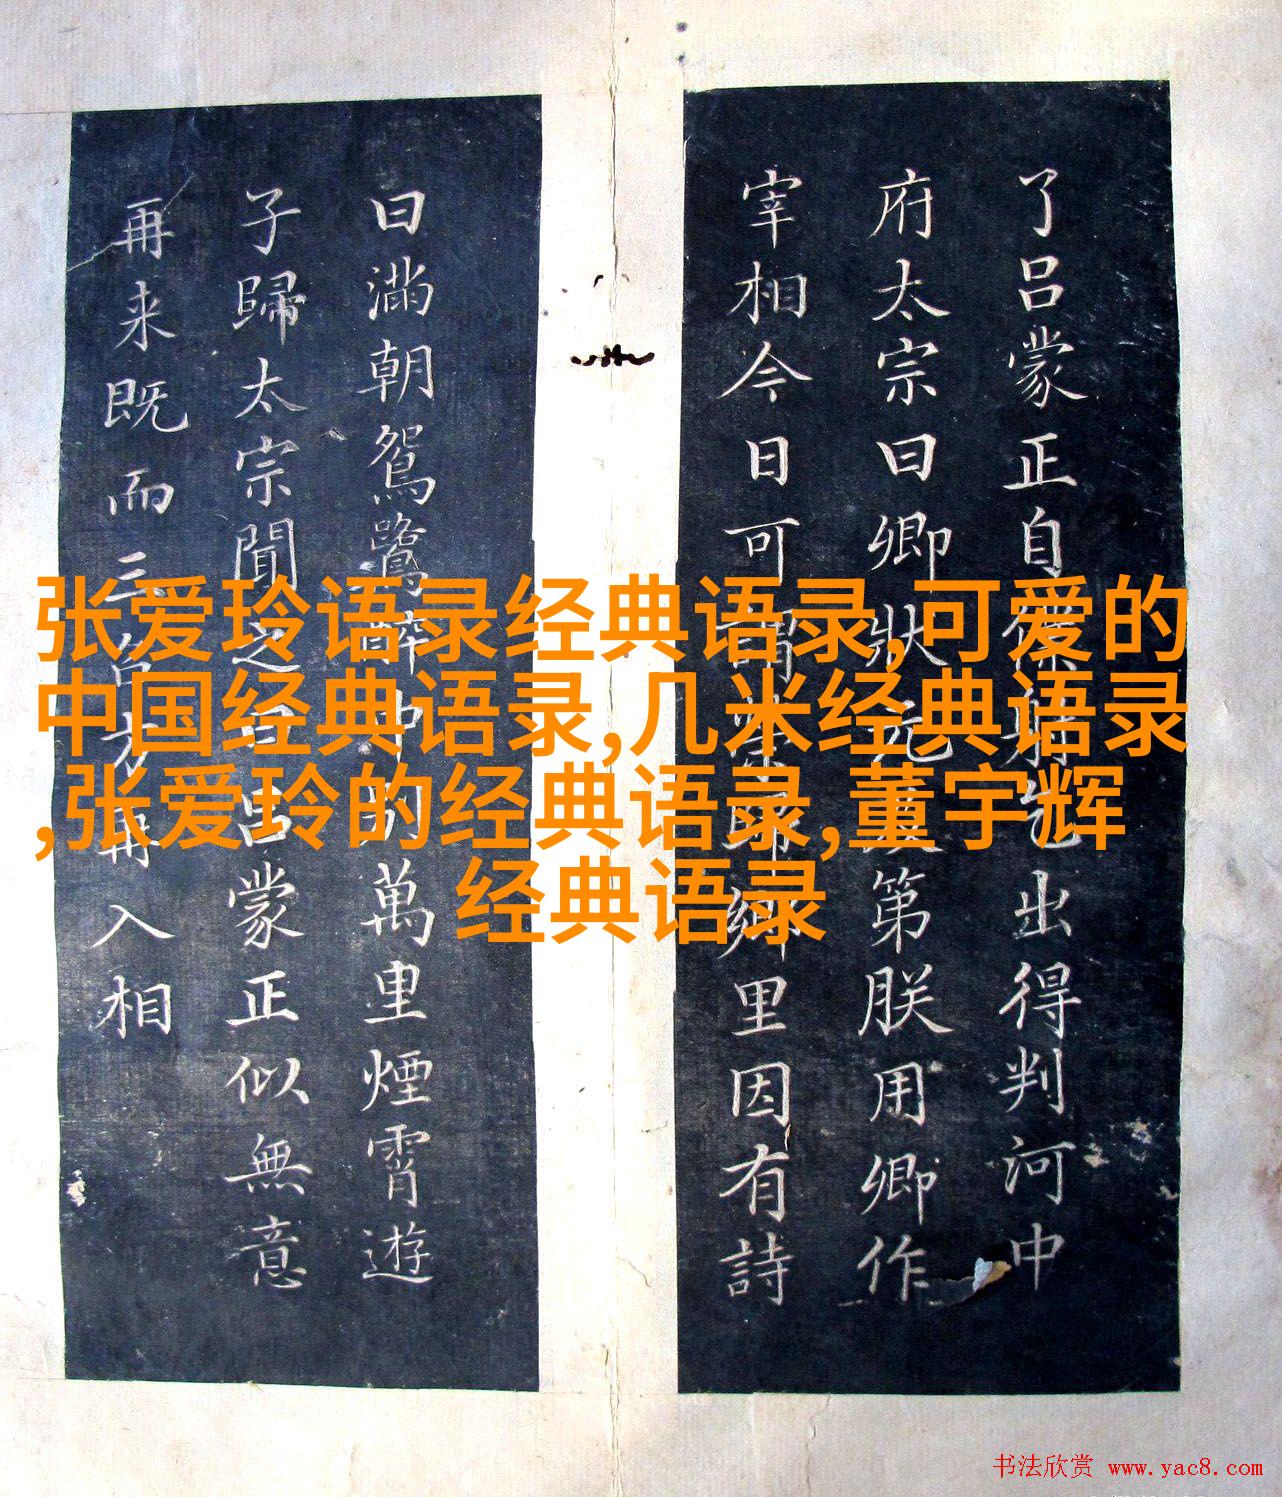 了吕蒙正自出得判河中
府太宗曰卿狀第朕用卿作
宰相今日可謂鄉里因有詩
曰滿朝鴛鷺醉中別萬里煙霄遊
子歸太宗聞之曰吕蒙正似無意
再来既而三再入相
张爱玲语录经典语录,可爱的
中国经典语录,几米经典语录
,张爱玲的经典语录,董宇辉
经典语录
书法欣赏 www.yac8.com